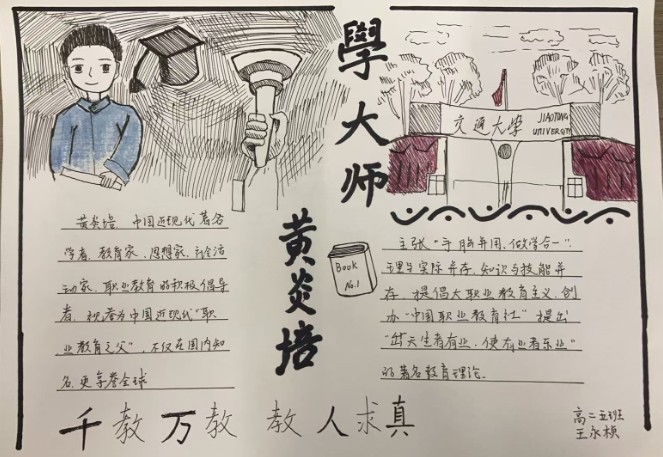 學大师
黄炎培
交通大学
JIAOTONG
UNIVERSITY
黄炎培,中国近现代著名
学者、教育家、思想家、社会活
动家、职业教育的积极倡导
者,被誉为中国近现代“职
业教育之父”,不仅在国内知
名,更享誉全球
Book
No.1
主张“手脑并用、做学合一”、
理与实际并存,知识与技能并
存,提倡大职业教育主义,创
办“中国职业教育社”提出
“
无
业者有业,使有业者乐业”
的著名教育理论.
千教万教 教人求真
高二五班
王永桢